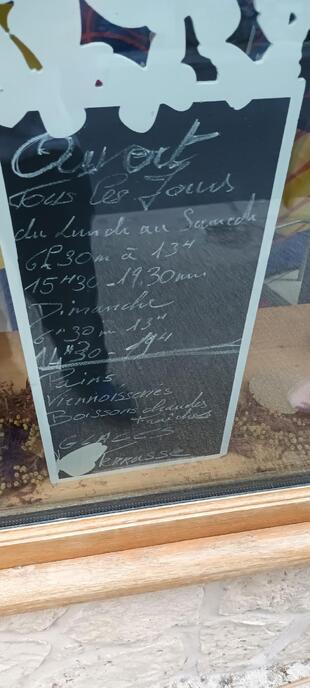 Ouvert
Tous les Jours
du Lundi au Samedi
6h30m à 13H
15H30 - 19.30m.
Dimanche
6H30m 13H
14H30 - 19H
Pains
Viennoiseries
Boissons chaudes
fraîches
GLACES
Terrasse